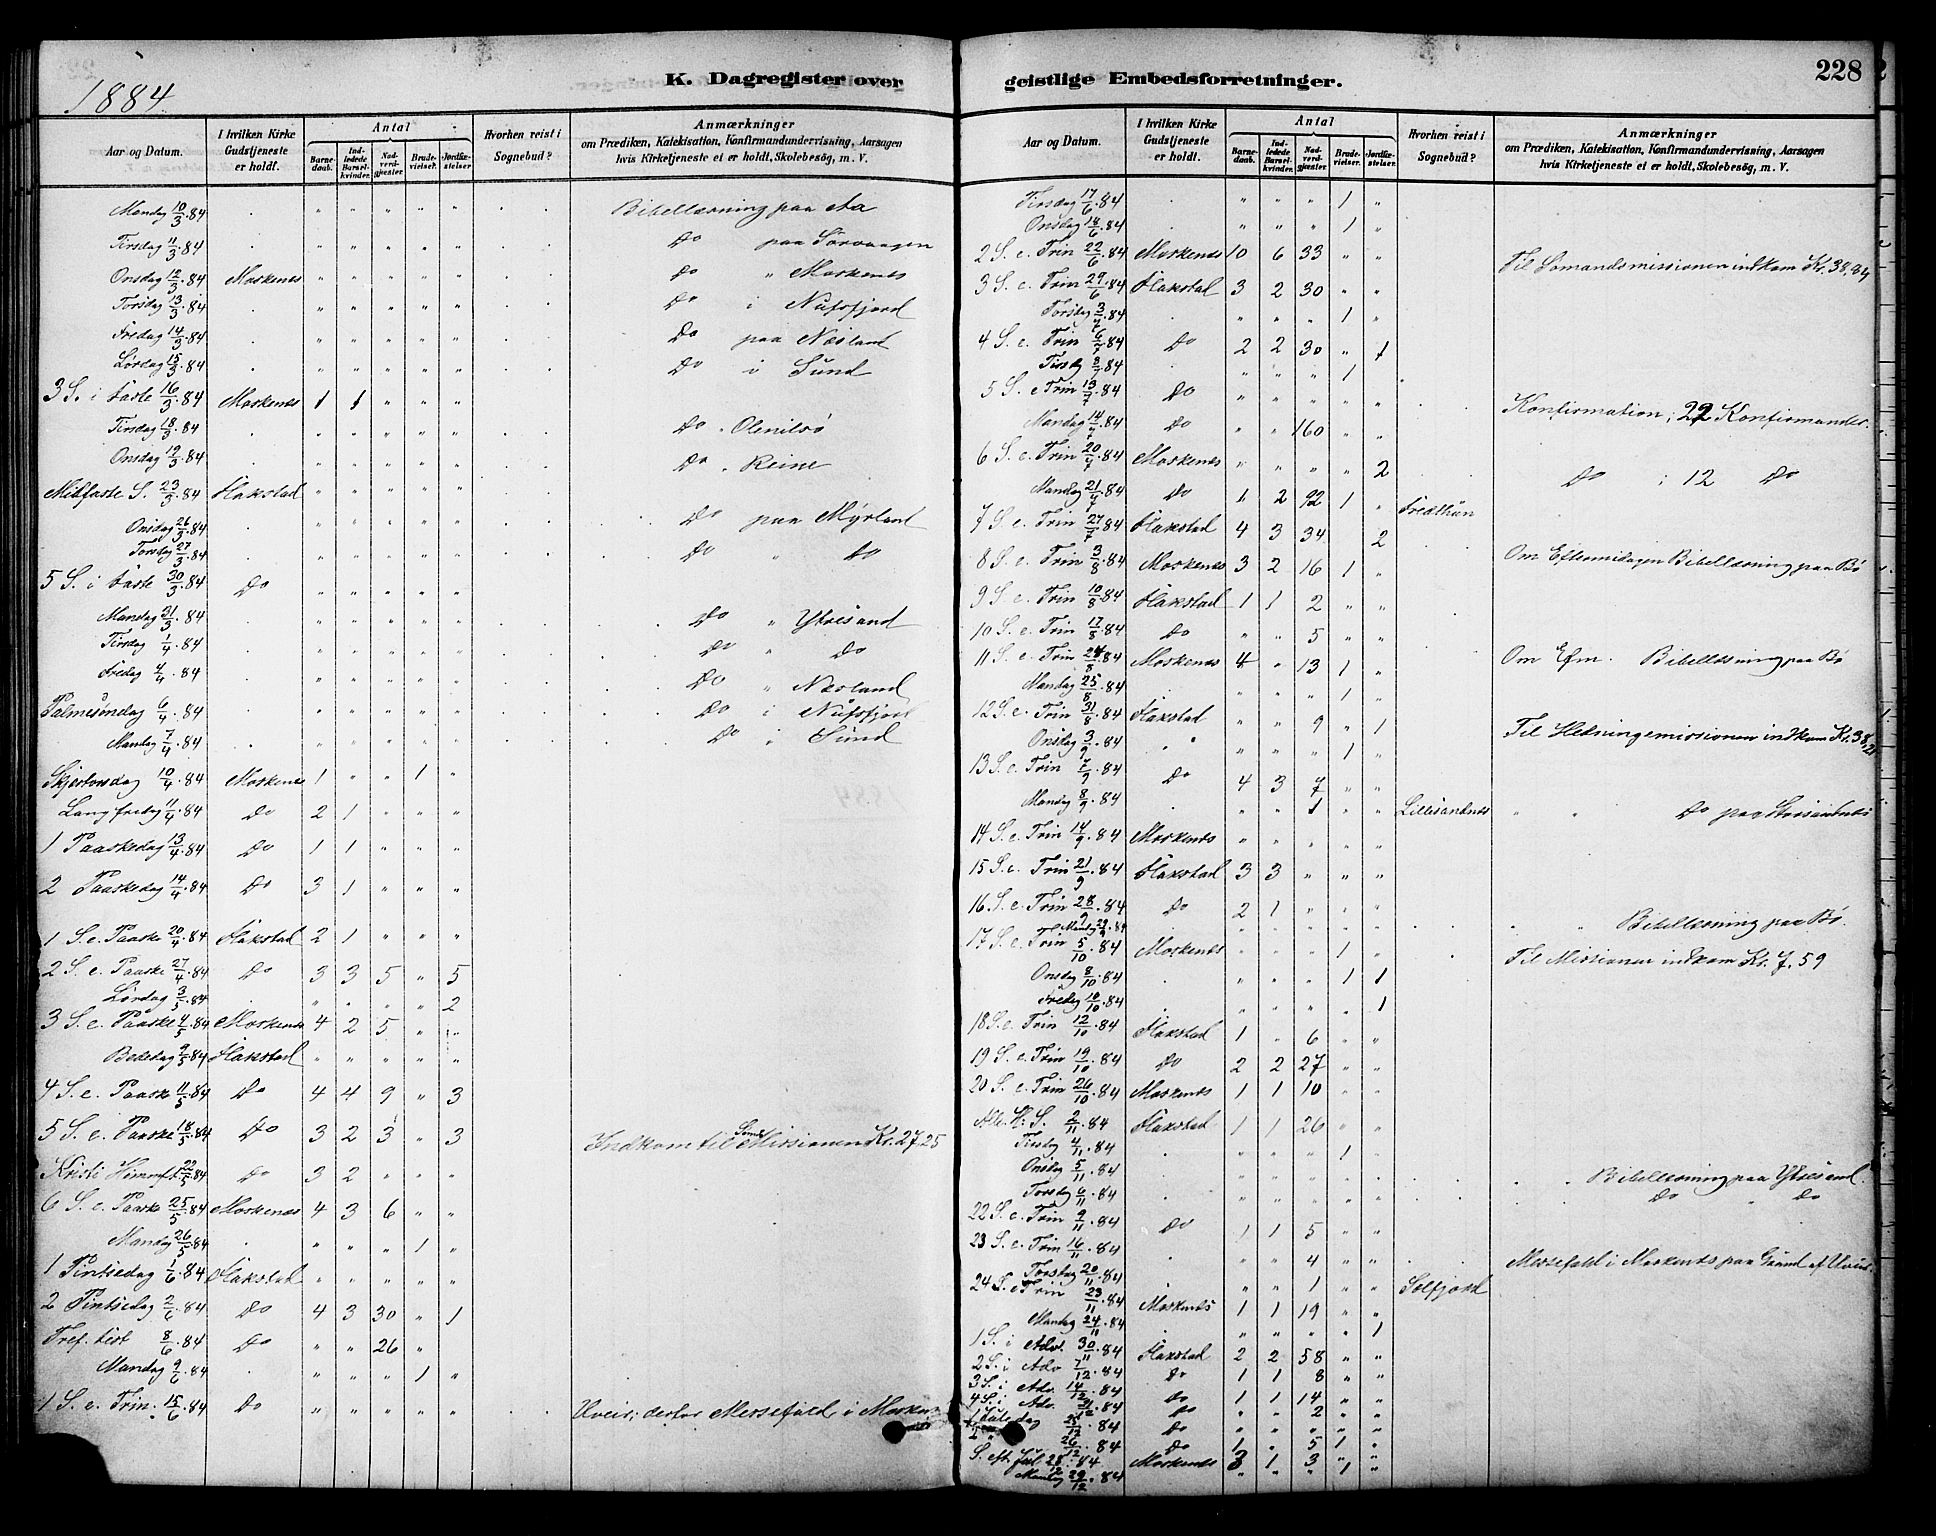 1884.
K. Dagregister over
Aar og Datum.
I hvilken Kirke Gudstjeneste er holdt.
Antal
Barne-daab.
Ind-ledede Barsel-kvinder.
Nad-verd-gjæster.
Brude-vielser.
Jordfæ-stelser
Hvorhen reist i Sognebud?
Anmærkninger
om Prædiken, Katekisation, Konfirmandundervisning, Aarsagen
hvis Kirketjeneste ei er holdt, Skolebesög, m. V.
Mandag 10/3.84 . " " " " " . . Bibellæsning paa Aa
Tirsdag 11/3.84 . " " " " " . . Do paa Sørvaagen
Onsdag 12/3.84 Moskenes " " " " " . . Do " Moskenes
Torsdag 13/3.84 . " " " " " . . Do i Nufsfjord
Fredag 14/3.84 . " " " " " . . Do paa Næsland
Lørdag 15/3.84 . " " " " " . . Do i Sund
3 S. i Faste 16/3.84 Moskenes 1 1 " " "
Tirsdag 18/3.84 . " " " " " . . Do " Olenilsø
Onsdag 19/3.84 . " " " " " . . Do " Reine
Midfaste S. 23/3.84 Flakstad " " " " "
Onsdag 26/3.84 . " " " " " . . Do paa Myrland
Torsdag 27/3.84 . " " " " " . . Do " Do
5 S. i Faste 30/3.84 Do " " " " "
Mandag 31/3.84 . " " " " " . . Do " Ytresand
Tirsdag 1/4.84 . " " " " " . . Do " Do
Fredag 4/4.84 . " " " " " . . Do " Næsland
Palmesøndag 6/4.84 . " " " " " . . Do i Nufsfjord
Mandag 7/4.84 . " " " " " . . Do i Sund
Skjertorsdag 10/4.84 Moskenes 1 " " 1 "
Langfredag 11/4.84 Do 2 1 " " "
1 Paaskedag 13/4.84 Do 1 1 " " "
2 Paaskedag 14/4.84 Do 3 1 " " "
1 S. e. Paaske 20/4.84 Flakstad 2 1 " " "
2 S. e. Paaske 27/4.84 Do 3 3 5 " 5
Lørdag 3/5.84 . " " " " 2
3 S. e. Paaske 4/5.84 Moskenes 4 2 5 " "
Bededag 9/5.84 Flakstad " " " " "
4 S. e. Paaske 11/5.84 Do 4 4 9 " 3
5 S. e. Paaske 18/5.84 Do 3 2 3 " 3 Indkom til Missionen Kr. 27,25
Kristi Himmft 22/5.84 Do 3 2 " " "
6 S. e. Paaske 25/5.84 Moskenes 4 3 6 " "
Mandag 26/5.84 . " " " 1 "
1 Pintsedag 1/6.84 Flakstad " " " " "
2 Pintsedag 2/6.84 Do 4 3 30 " 1
Tref. fest 8/6.84 Do " " 26 "
Mandag 9/6.84 . " " " 1 "
1 S. e. Trin. 15/6.84 Do " " " " " . . Uveir; derfor Messefald i Mosken
geistlige Embedsforretninger.
228
Aar og Datum.
I hvilken Kirke Gudstjeneste er holdt.
Antal
Barne-daab.
Ind-ledede Barsel-kvinder.
Nad-verd-gjæster.
Brude-vielser.
Jordfæ-stelser.
Hvorhen reist i Sognebud?
Anmærkninger
om Prædiken, Katekisation, Konfirmandundervisning, Aarsagen
hvis Kirketjeneste ei er holdt, Skolebesög, m. V.
Tirsdag 17/6.84 . " " " 1 "
Onsdag 18/6.84 " " " 1 "
2 S. e. Trin 22/6.84 Moskenes 10 6 33 " " Til Sømandsmissionen indkom Kr. 38,84
3 S. e. Trin 29/6.84 Flakstad 3 2 30 " "
Torsdag 3/7.84 . " " " 1 "
4 S. e. Trin 6/7.84 Do 2 2 30 " 1
Tirsdag 8/7.84 " " " 1 .
5 S. e Trin 13/7.84 Do " " " " " . Konfirmation; 22 Konfirmander.
Mandag 14/7.84 Do " " 160 " "
6 S. e. Trin 20/7.84 Moskenes " " " " 2 Do ; 12 Do
Mandag 21/7.84 Do 1 2 92 1 " Fredthün
7 S. e. Trin 27/7.84 Flakstad 4 3 34 2
8 S. e. Trin 3/8.84 Moskenes 3 2 16 1 " Om Eftermidagen Bibellæsning paa Bø
9 S. e. Trin 10/8.84 Flakstad 1 1 2 " "
10 S. e. Trin 17/8.84 Do " " 5 " "
11 S. e. Trin 24/8.84 Moskenes 4 " 13 1 " Om Efm. Bibellæsning paa Bø
Mandag 25/8.84 " " " 1 "
12 S. e. Trin 31/8.84 Flakstad " " 9 " 1 Til Hedningemissionen indkom Kr. 38,21
Onsdag 3/9.84 " " " " 1 "
13 S. e. Trin 7/9.84 Do 4 3 7 " "
Mandag 8/9.84 . " " 1 " " Lillesandnes " " Do paa Storsandnes
14 S. e. Trin 14/9.84 Moskenes " " " " "
15 S. e. Trin 21/9.84 Flakstad 3 3 " " "
16 S. e. Trin 28/9.84 Do 2 1 " " "
Mandag 29/9.84 . . " Bibellæsning paa Bø.
17 S. e. Trin 5/10.84 Moskenes " " " 1 " Til Missionen indkom Kr. 7,59
Onsdag 8/10.84 . " " " 1 1
Fredag 10/10.84 . " " " " 1
18 S. e. Trin 12/10.84 Flakstad 1 " 6 " "
19 S. e. Trin 19/10.84 Do 2 2 27 " "
20 S. e. Trin 26/10.84 Moskenes 1 1 10 " "
Alle H. S. 2/11.84 Flakstad 1 1 26 " "
Tirsdag 4/11.84 . " " " 1 "
Onsdag 5/11.84 . " " " " " " " Bibellæsning paa Ytresand.
Torsdag 6/11.84 . " " " " " Do " Do
22 S. e. Trin 9/11.84 Do 1 1 5 " "
23 S. e. Trin 16/11.84 . " " 4 " " Messefald i Moskenes paa Grund af Uveir.
Torsdag 20/11.84 . " " 1 " " Solfjord
24 S. e Trin 23/11.84 Moskenes 1 1 19 " "
Mandag 24/11.84 . " " " " 1
1 S. i Adv. 30/11.84 Flakstad 2 2 58 " "
2 S. i Adv 7/12.84 Do 1 1 8 " "
3 S. i Adv. 14/12.84 Do 1 1 14 " "
4 S. i Adv. 21/12.84 Do " " 2 " "
1 Juledag 25/12.84 Do " " " " "
2 " 26/12.84 Do 1 " 5 1 "
S. eft. Jul 28/12.84 Moskenes 3 1 3 " "
Mandag 29/12.84 " " " 1 "